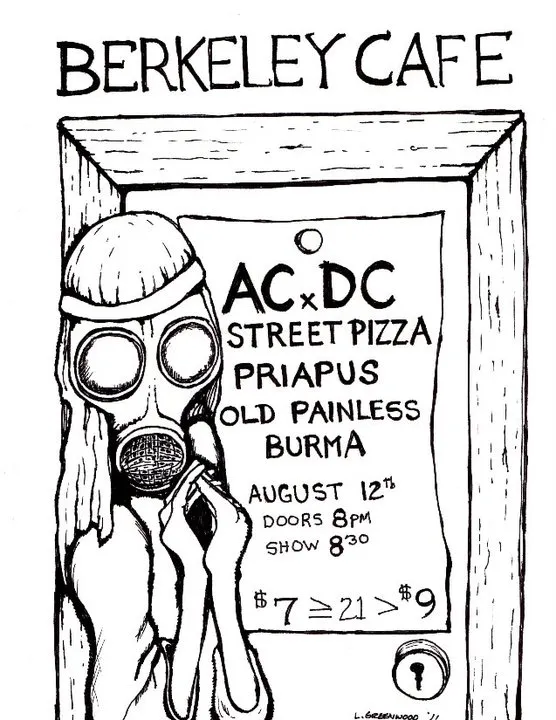 BERKELEY CAFE
ACxDC
STREET PIZZA
PRIAPUS
OLD PAINLESS
BURMA
AUGUST 12th
DOORS 8PM
SHOW 830
$7 ≥ 21 > $9
L. GREENWOOD '11